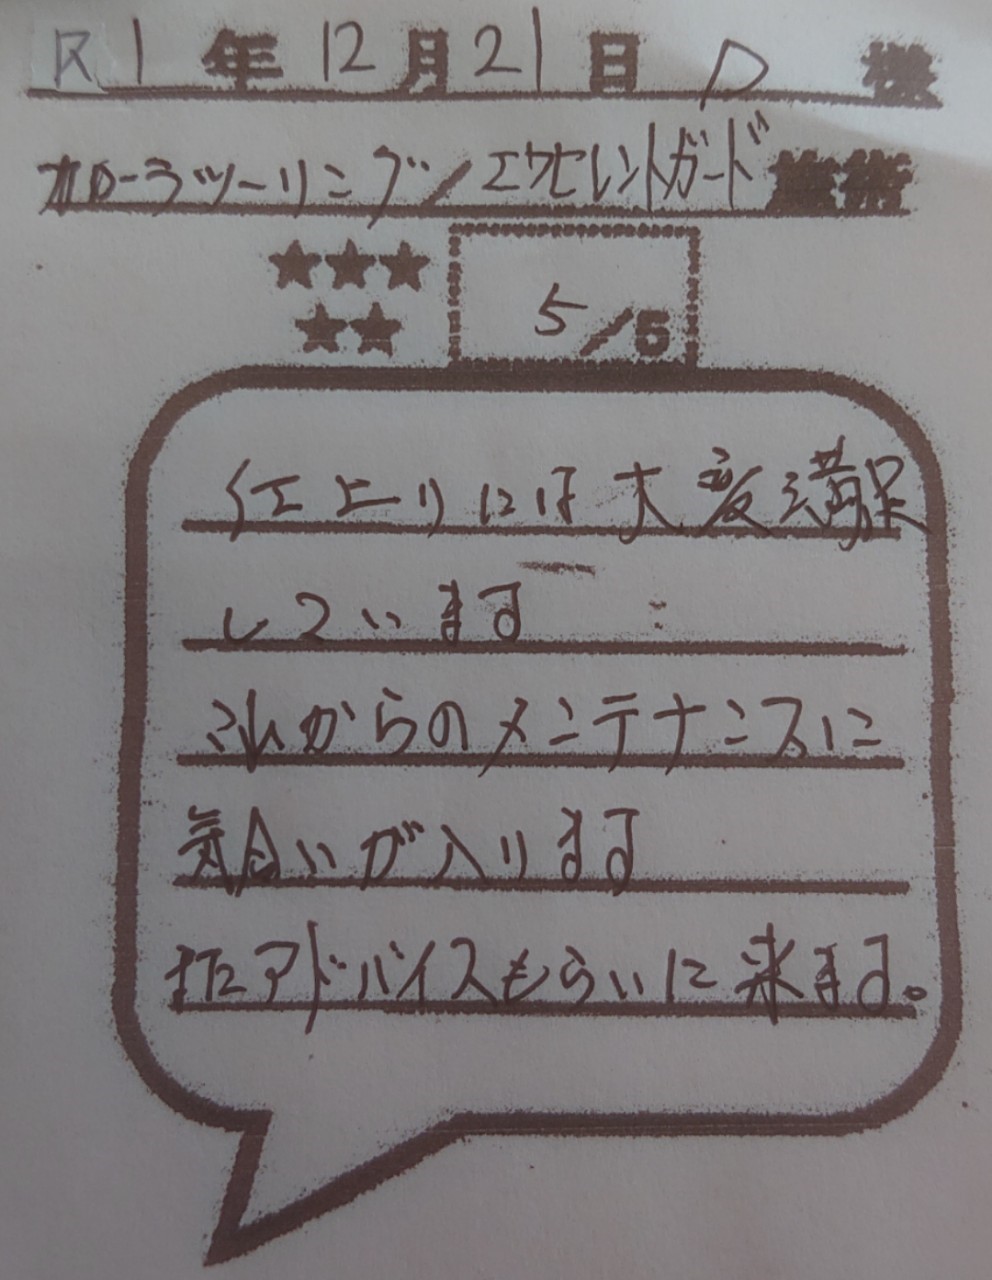 R1年12月21日 D 様
カローラツーリング/エクセレントガード施術
★★★
★★
5/5
仕上りには大変満足
しています
これからのメンテナンスに
気合いが入ります
またアドバイスもらいに来ます。